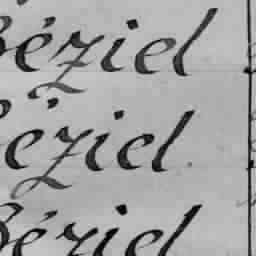 Béziel
Béziel.
Béziel